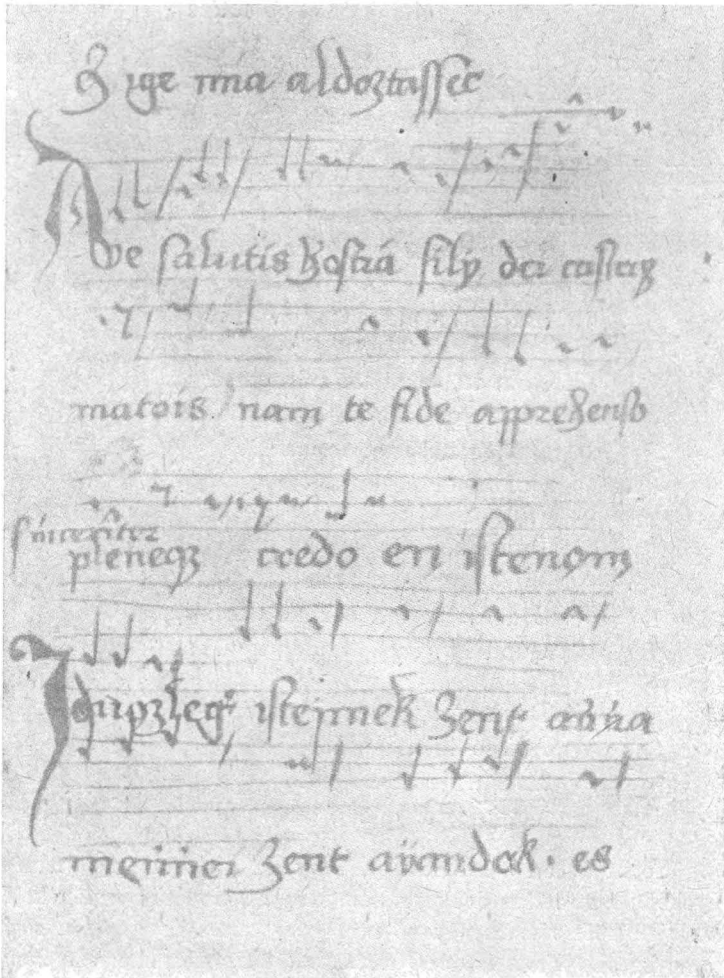 ige mia aldoztassec
Ave salutis hostia filÿ dei castaqꝫ
matois nam te fide apprehenso
sinceriter
pleneqꝫ credo en istenom
istennek zent anÿa
menÿnei zent aÿandok · es